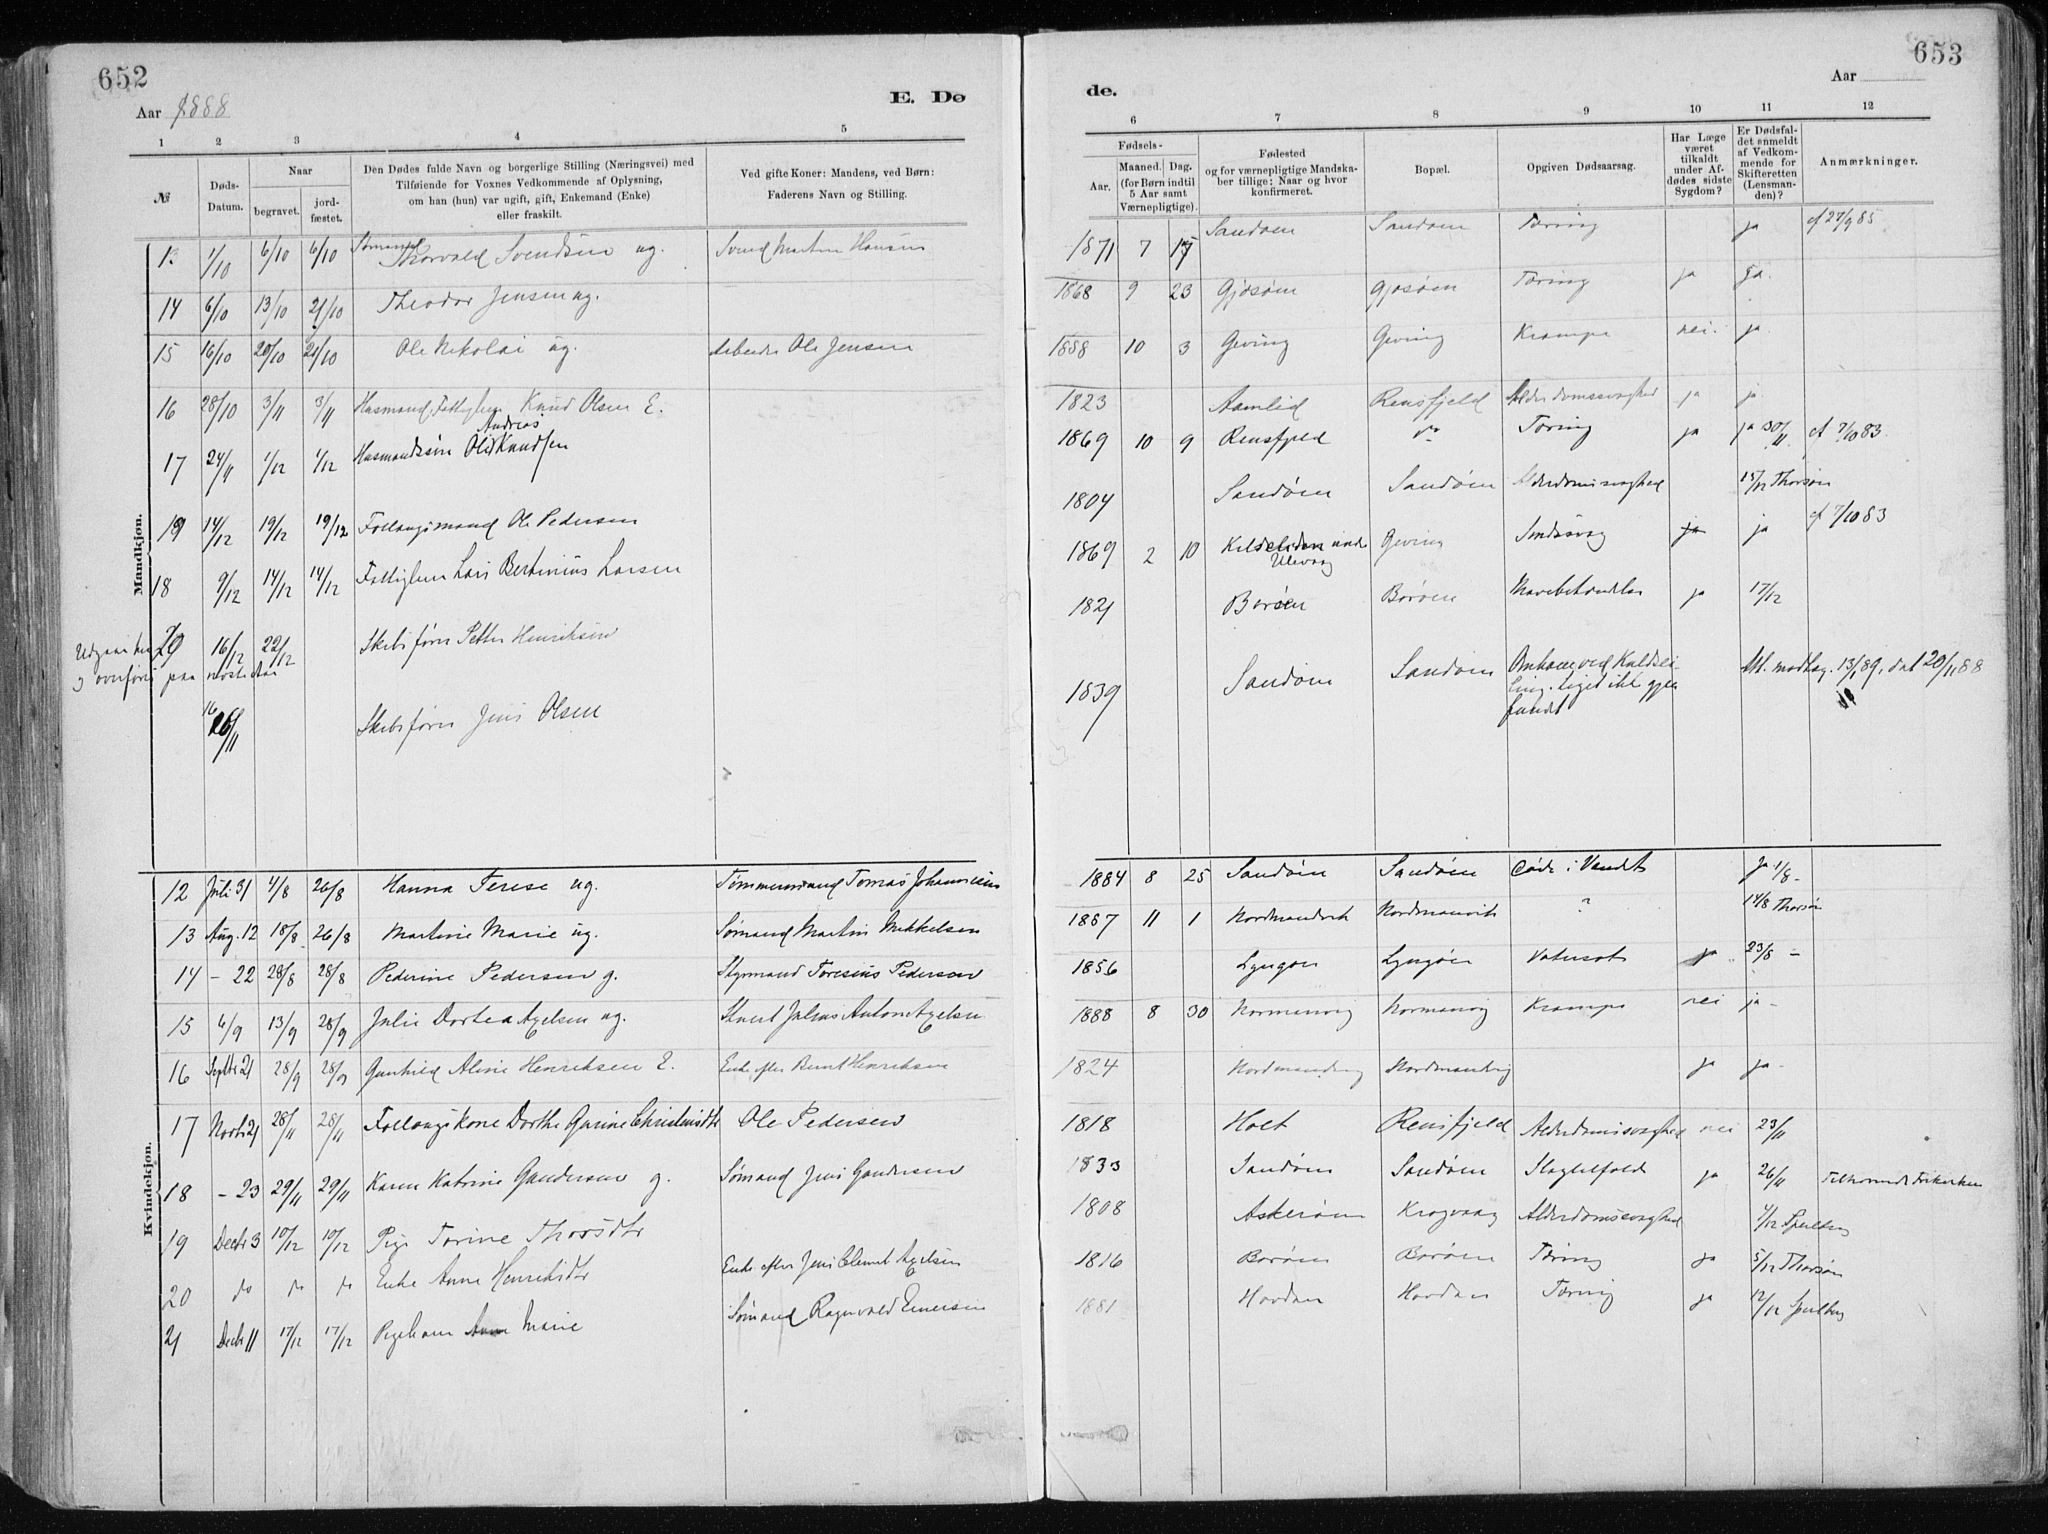 652
Aar 1888
E. Dø
1 2 3 4 5
№
Døds-Datum.
Naar
begravet. jord-fæstet.
Den Dødes fulde Navn og borgerlige Stilling (Næringsvei) med
Tilføiende for Voxnes Vedkommende af Oplysning,
om han (hun) var ugift, gift, Enkemand (Enke)
eller fraskilt.
Ved gifte Koner: Mandens, ved Børn:
Faderens Navn og Stilling.
Mandkjøn.
13 1/10 6/10 6/10 Sømand Thorvald Svendsen ug. Svend Martin Hansen
14 6/10 13/10 21/10 Theodor Jensen ug.
15 16/10 20/10 21/10 Ole Nikolai ug. Arbeider Ole Jensen
16 28/10 3/11 3/11 Husmand, Fattiglem Knud Olsen E.
Andreas
17 24/11 1/12 1/12 Husmandssøn Ole Knudsen
19 14/12 19/12 19/12 Follaugsmand Ole Pedersen
18 9/12 14/12 14/12 Fattiglem Lars Bertinius Larsen
20 16/12 22/12 Skibsfører Petter Henriksen
Udgaar her
og overføres paa næste Aar
16/11 Skibsfører Jens Olsen
Kvindekjøn.
12 Juli 31 4/8 26/8 Hanna Terese ug. Tømmermand Tomas Johannesen
13 Aug. 12 18/8 26/8 Martine Marie ug. Sømand Martin Mikkelsen
14 - 22 28/8 28/8 Pederine Pedersen g. Styrmand Toresius Pedersen
15 6/9 13/9 28/9 Julie Dortea Axelsen ug. Stuert Julius Anton Axelsen
16 Septbr 21 28/9 28/9 Gunhild Aline Henriksen E. Enke efter Bernt Henriksen
17 Novbr 21 28/11 28/11 Follaugskone Dorthe Gurine Christensdtr Ole Pedersen
18 - 23 29/11 29/11 Karen Katrine Gundersen g. Sømand Jens Gundersen
19 Decbr 3 10/12 10/12 Pige Torine Thorsdtr
20 do do do Enke Anne Henriksdtr Enke efter Jens Clemet Axelsen
21 Decbr 11 17/12 17/12 Pigebarn Anne Marie Sømand Ragnvald Einersen
653
Aar
de.
6 7 8 9 10 11 12
Fødsels-
Aar. Maaned. Dag.
(for Børn indtil
5 Aar samt
Værnepligtige).
Fødested
og for værnepligtige Mandska-
ber tillige: Naar og hvor
konfirmeret.
Bopæl.
Opgiven Dødsaarsag.
Har Læge
været
tilkaldt
under Af-
dødes sidste
Sygdom?
Er Dødsfal-
det anmeldt
af Vedkom-
mende for
Skifteretten
(Lensman-
den)?
Anmærkninger.
1871 7 17 Sandøen Sandøen Tæring ja cf 27/9 85
1868 9 23 Gjøsøen Gjøsøen Tæring ja ja.
1888 10 3 Geving Geving Krampe nei. ja.
1823 Aamlid Rensfjeld Alderdomssvaghed ja ja.
1869 10 9 Rensfjeld do Tæring ja ja 30/11. cf 7/10 83.
1804 Sandøen Sandøen Alderdomssvaghed 15/12 Thorsøn
1869 2 10 under Geving Sindssvag ja ja cf 7/10 83
1821 Borøen Borøen ja 17/12
1839 Sandøen Sandøen Omkom ved Kuldsei
ling. Liget ikke gjen
fundet
Att. modtag. 13/1 89, dat 20/11 88
1884 8 25 Sandøen Sandøen Døde i Vandet ja 1/8 -
1887 11 1 Nordmandvik Nordmanvik ? 14/8 Thorsøn
1856 Lyngør Lyngøen Vatersot ja 23/8 -
1888 8 30 Normanvig Normanvig Krampe nei ja -
1824 Nordmandvig Nordmandvig ja ja -
1818 Holt Rensfjeld Alderdomssvaghed nei 23/11
1833 Sandøen Sandøen Slagtilfælde ja 26/11 Tilhørende Frikirken
1808 Askerøen Krogvaag Alderdomssvaghed 4/12
1816 Borøen Borøen Tæring ja 5/12 Thorsøn
1881 Hovdan Hovdan Tæring ja 12/12